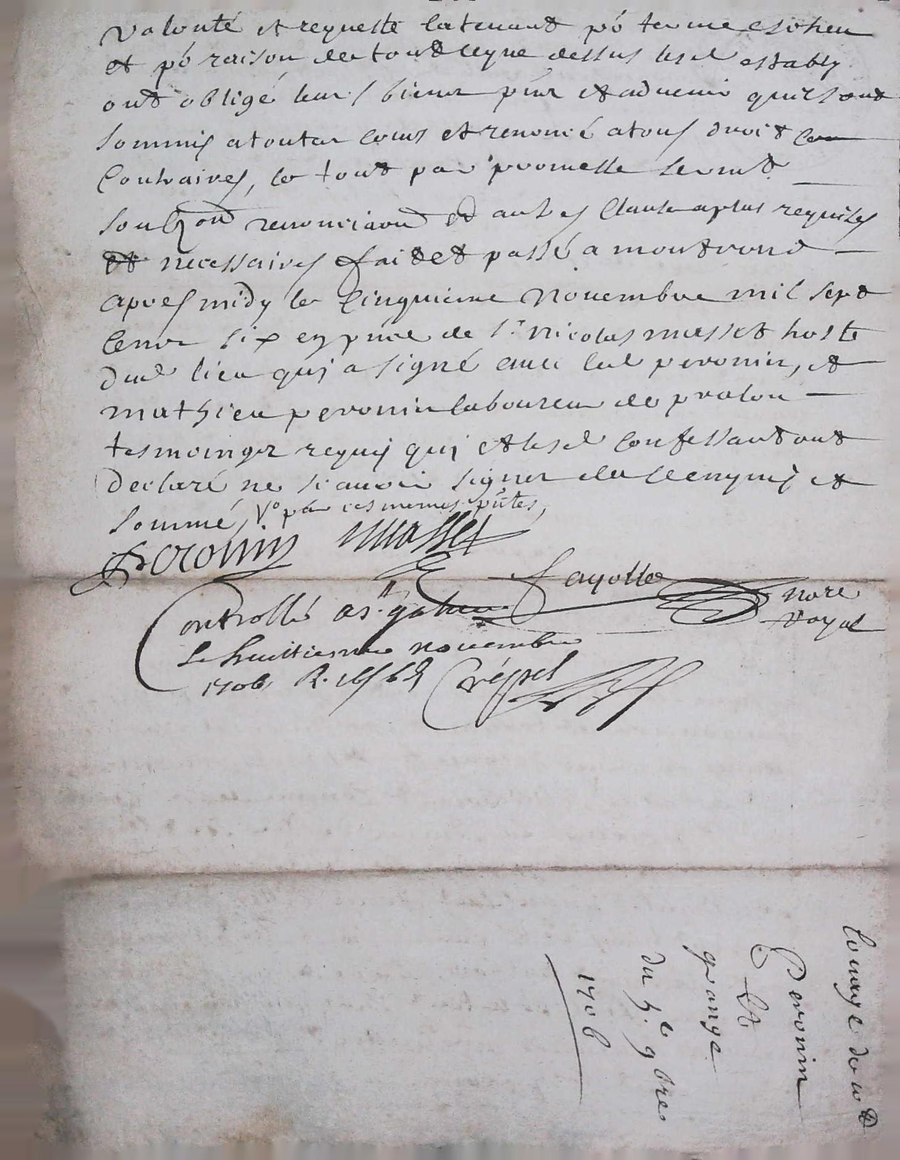 Valonté et requeste latenant po terme escheu
et po raison de tout ceque dessus lesd establÿ
ont obligé leurs biens pñs et advenir quils ont
sommis a toutes cours et renoncé a tous droits
contraires, le tout par promesse sermt
renonciaon et autres clauses a plus requises
et necessaires fait et passé a montrond
apres midy le cinquieme novembre mil sept
cens six en pñce de Sr Nicolas masset hoste
dud lieu qui a signé avec led peronin, et
mathieu peronin laboureur de
tesmoings requis qui et lesd confessant ont
declaré ne scavoir signer de ce enquis et
sommés, Vo par ces mesmes pñtes,
Peronin masset
fayolle nore
royal
Controllé a st
le huittiesme novembre
1706 R.
Crépet
louage de
Peronin
et
grange
du 5.e 9bre
1706